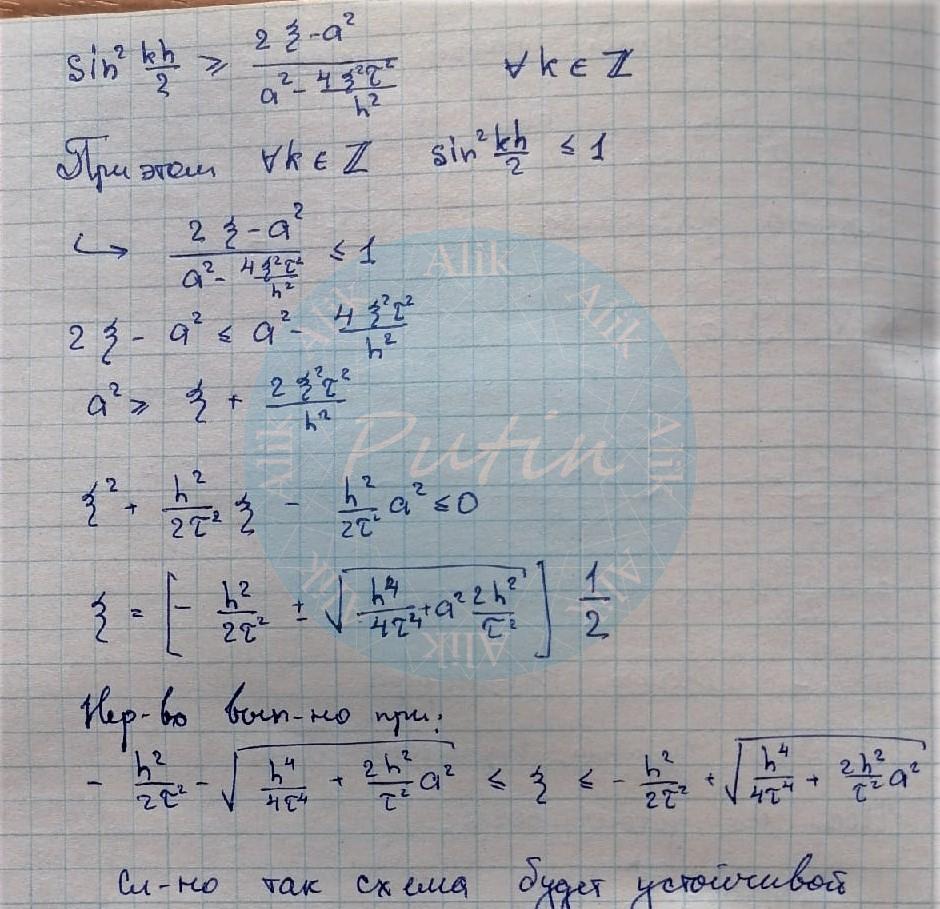 sin² kh/2 ≥ (2ξ - a²)/(a² - 4ξ²τ²/h²) ∀k ∈ ℤ
При этом ∀k ∈ ℤ sin² kh/2 ≤ 1
↪ (2ξ - a²)/(a² - 4ξ²τ²/h²) ≤ 1
2ξ - a² ≤ a² - 4ξ²τ²/h²
a² ≥ ξ + 2ξ²τ²/h²
ξ² + h²/2τ² ξ - h²/2τ² a² ≤ 0
ξ = [- h²/2τ² ± √(h⁴/4τ⁴ + a² 2h²/τ²)] 1/2
Нер-во вып-но при:
- h²/2τ² - √(h⁴/4τ⁴ + 2h²/τ² a²) ≤ ξ ≤ - h²/2τ² + √(h⁴/4τ⁴ + 2h²/τ² a²)
Сл-но так схема будет устойчивой
Alik
Alik
Alik
Alik
Alik
Alik
Alik
Alik
Putin